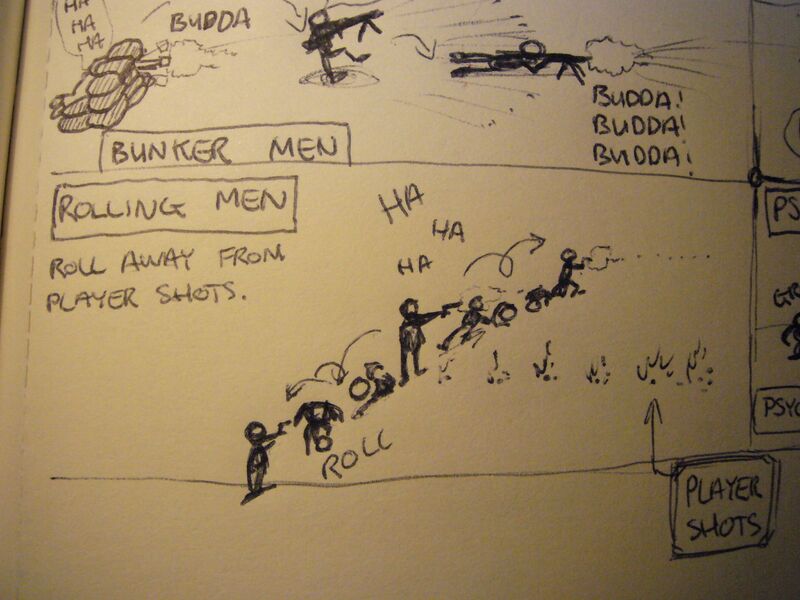 HA
HA
HA
BUDDA
BUDDA!
BUDDA!
BUDDA!
BUNKER MEN
ROLLING MEN
ROLL AWAY FROM
PLAYER SHOTS.
HA
HA
HA
ROLL
PLAYER
SHOTS
PS
GR
PSYC